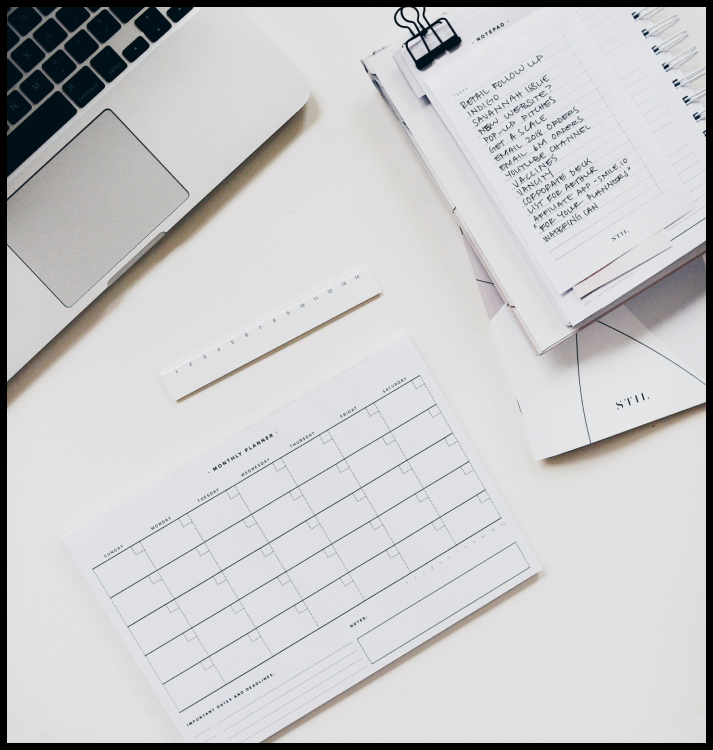 - NOTEPAD -
TASKS
RETAIL FOLLOW UP
INDIGO
SAVANNAH ISSUE
NEW WEBSITE?
POP-UP PITCHES
GET A SCALE
EMAIL 2018 ORDERS
EMAIL 6M ORDERS
YOUTUBE CHANNEL
VACCINES
VANCITY
CORPORATE DECK
LIST FOR ARTHUR
AFFILIATE APP - SMILE.IO
"FOR YOUR PLANNERS"
WATERING CAN
STIL
STIL
1 2 3 4 5 6 7 8 9 10 11 12 13 14
- MONTHLY PLANNER -
SUNDAY MONDAY TUESDAY WEDNESDAY THURSDAY FRIDAY SATURDAY
NOTES:
IMPORTANT DATES AND DEADLINES: